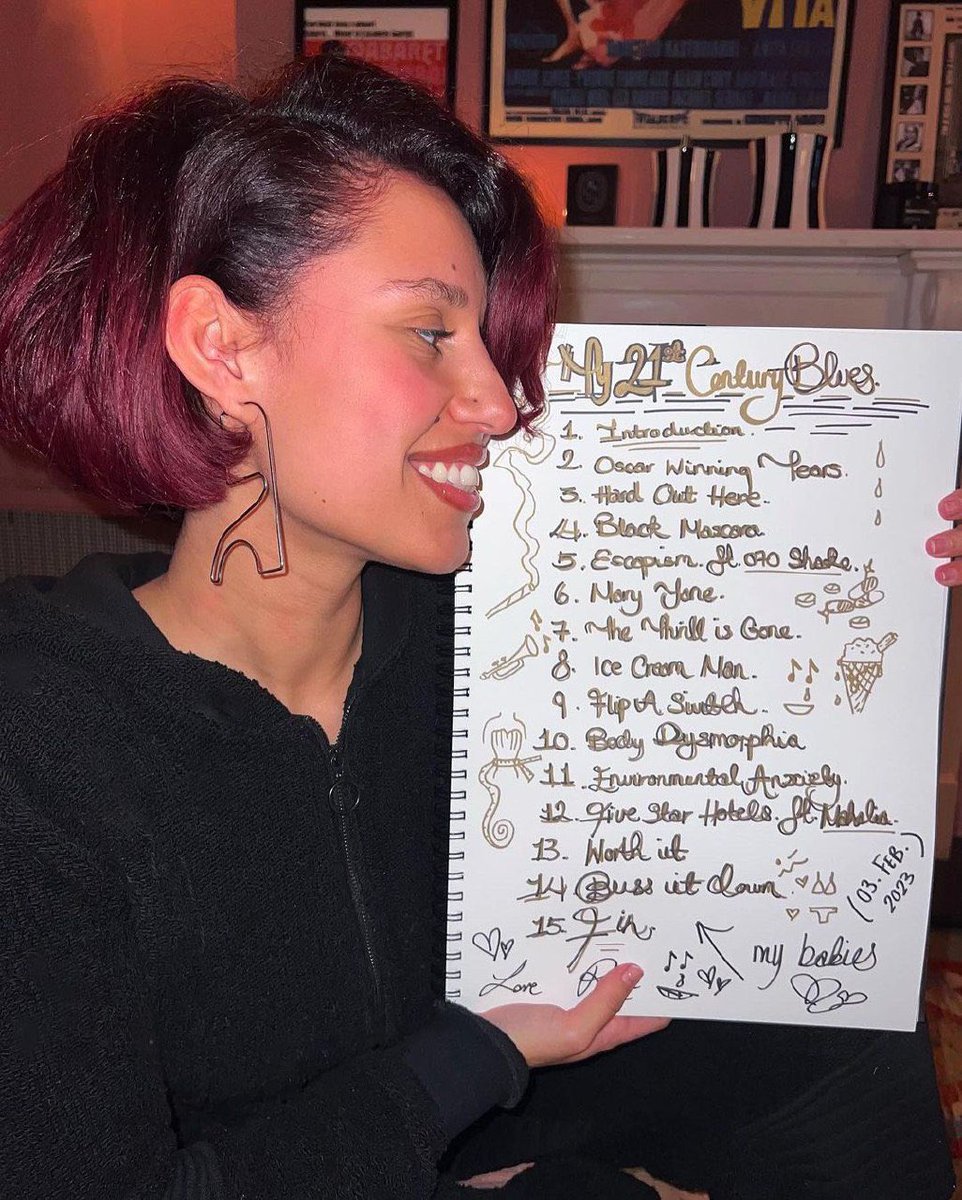 CABARET
VITA
My 21st Century Blues.
1. Introduction.
2. Oscar Winning Years.
3. Hard Out Here.
4. Black Mascara
5. Escapism. ft 070 Shake.
6. Mary Jane.
7. The Thrill is Gone.
8. Ice Cream Man.
9. Flip A Switch.
10. Body Dysmorphia
11. Environmental Anxiety.
12. Five Star Hotels. ft. Mahalia.
13. Worth it
14. Buss it down.
15. Fin.
(03. FEB. 2023)
my babies
Love